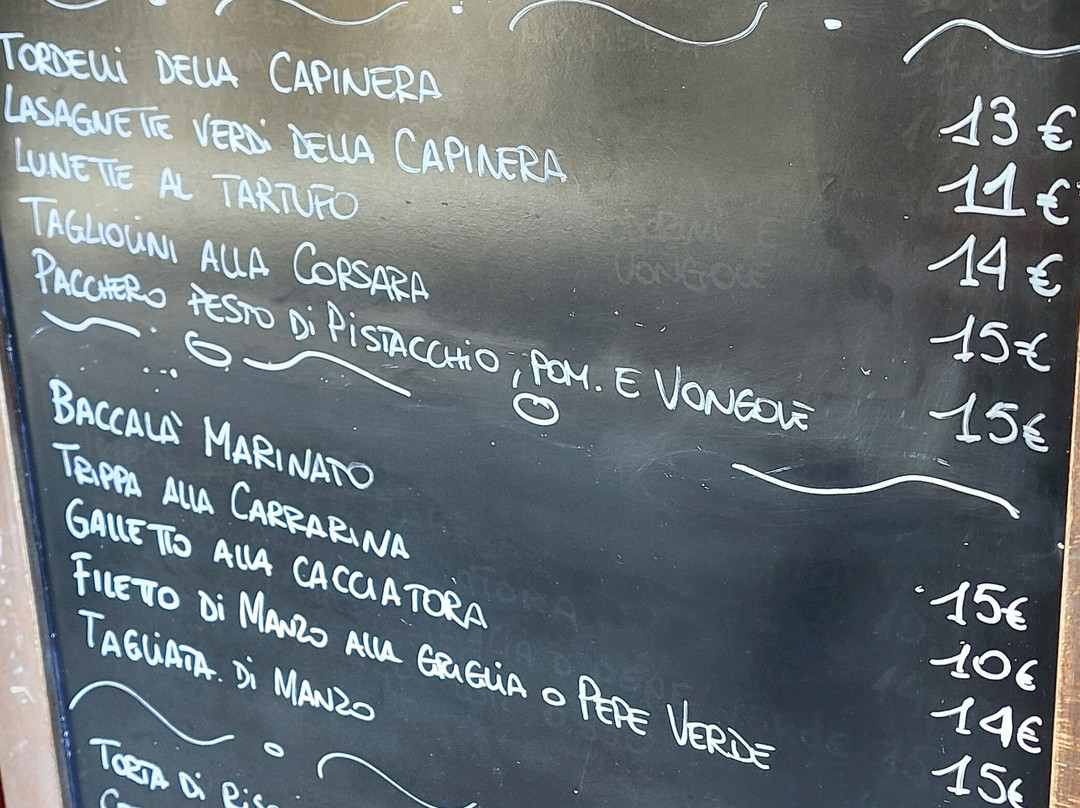 TORDELLI DELLA CAPINERA 13 €
LASAGNETTE VERDI DELLA CAPINERA 11 €
LUNETTE AL TARTUFO 14 €
TAGLIOLINI ALLA CORSARA 15 €
PACCHERO PESTO DI PISTACCHIO, POM. E VONGOLE 15 €
BACCALÀ MARINATO 15 €
TRIPPA ALLA CARRARINA 10 €
GALLETTO ALLA CACCIATORA 14 €
FILETTO DI MANZO ALLA GRIGLIA O PEPE VERDE 15 €
TAGLIATA DI MANZO
TORTA DI